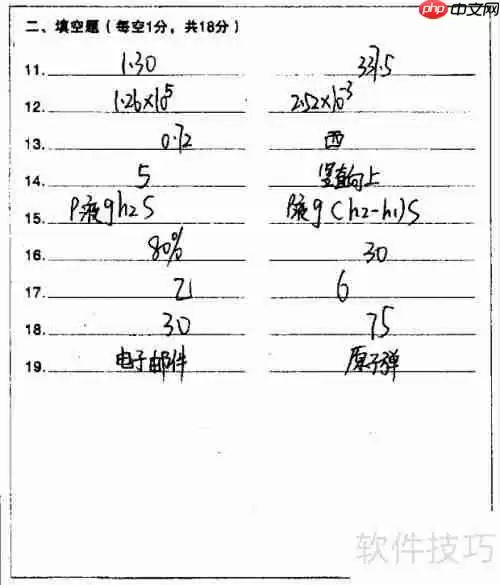 php 中文网
二、填空题（每空1分，共18分）
11. 1.30 337.5
12. 1.26×10⁵ 2.52×10⁻³
13. 0.72 西
14. 5 竖直向上
15. ρ液gh2S ρ液g(h2-h1)S
16. 80% 30
17. 21 6
18. 30 75
19. 电子邮件 原子弹
软件技巧